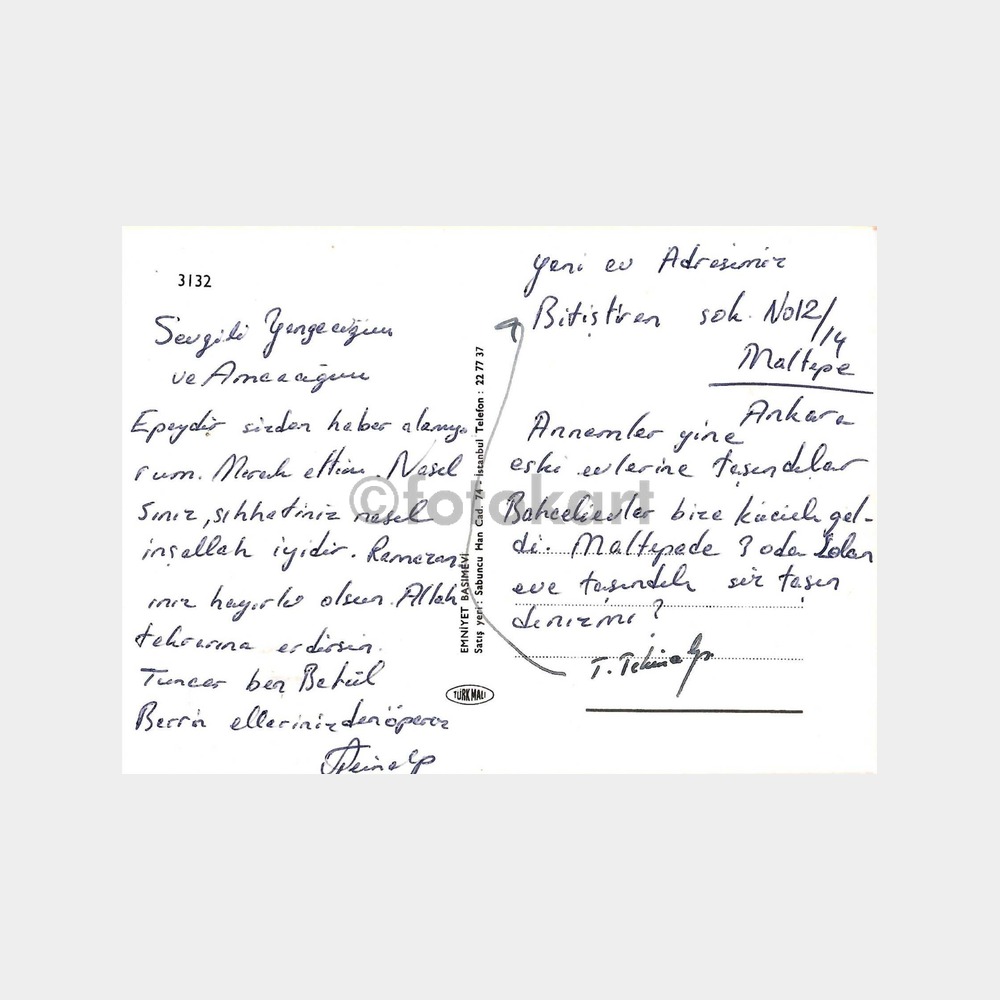 3132
Sevgili Yengeciğim
ve Amcacığım
Epeydir sizden haber alamıyo
rum. Merak ettim. Nasıl
sınız, sıhhatiniz nasıl
inşallah iyidir. Ramazanı
nız hayırlı olsun. Allah
tekrarına erdirsin.
Tuncer ben Betül
Berrin ellerinizden öperiz
EMNİYET BASIMEVİ
Satış yeri : Sabuncu Han Cad. 74 - İstanbul Telefon : 22 77 37
TÜRK MALI
yeni ev Adresimiz
Bitiştiren sok. No12/14
Maltepe
Ankara
Annemler yine
eski evlerine taşındılar
Bahçelievler bize küçük gel-
di. Maltepade 3 oda 1 olan
eve taşındık siz taşın
dınızmı?
T. Tekinalp
©fotokart